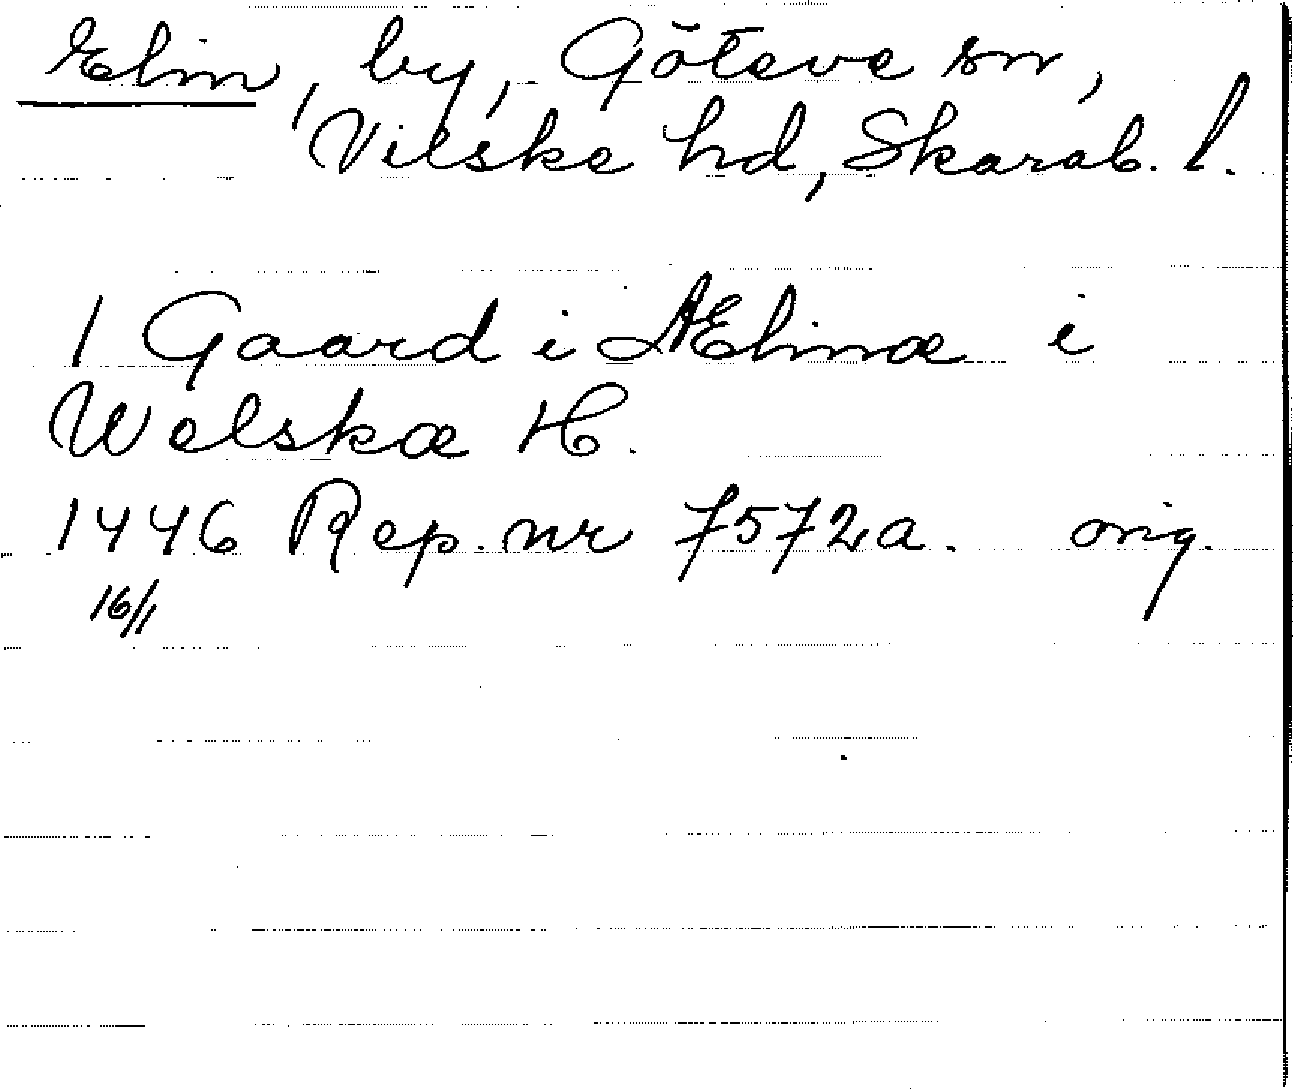 Elin, by, Göteve sn,
Vilske hd, Skarab. l.
1 Gaard i Ælinæ i
Welskæ H.
1446 Rep. nr 7572a. orig.
16/1